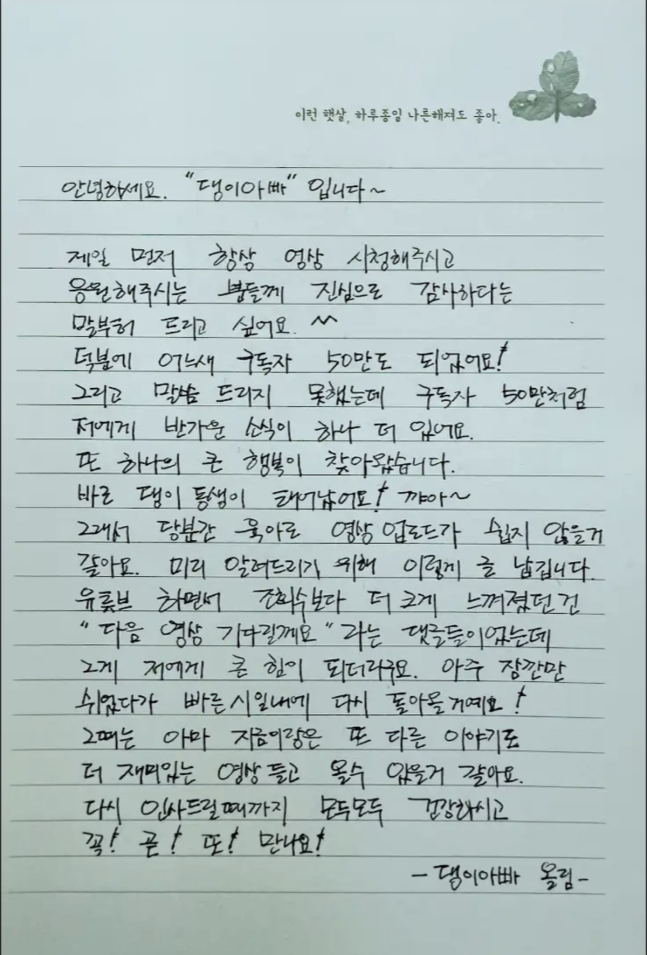 이런 햇살, 하루종일 나른해져도 좋아.
안녕하세요. "댕이아빠" 입니다~
제일 먼저 항상 영상 시청해주시고
응원해주시는 분들께 진심으로 감사하다는
말부터 드리고 싶어요. ^^
덕분에 어느새 구독자 50만도 되었어요!
그리고 말씀 드리지 못했는데 구독자 50만처럼
저에게 반가운 소식이 하나 더 있어요.
또 하나의 큰 행복이 찾아왔습니다.
바로 댕이 동생이 태어났어요! 꺄아~
그래서 당분간 육아로 영상 업로드가 쉽지 않을거
같아요. 미리 알려드리기 위해 이렇게 글 남깁니다.
유튜브 하면서 조회수보다 더 크게 느껴졌던건
"다음 영상 기다릴께요" 라는 댓글들이었는데
그게 저에게 큰 힘이 되더라구요. 아주 잠깐만
쉬었다가 빠른시일내에 다시 돌아올거예요!
그때는 아마 지금이랑은 또 다른 이야기로
더 재미있는 영상 들고 올수 있을거 같아요.
다시 인사드릴때까지 모두모두 건강하시고
꼭! 곧! 또! 만나요!
- 댕이아빠 올림 -